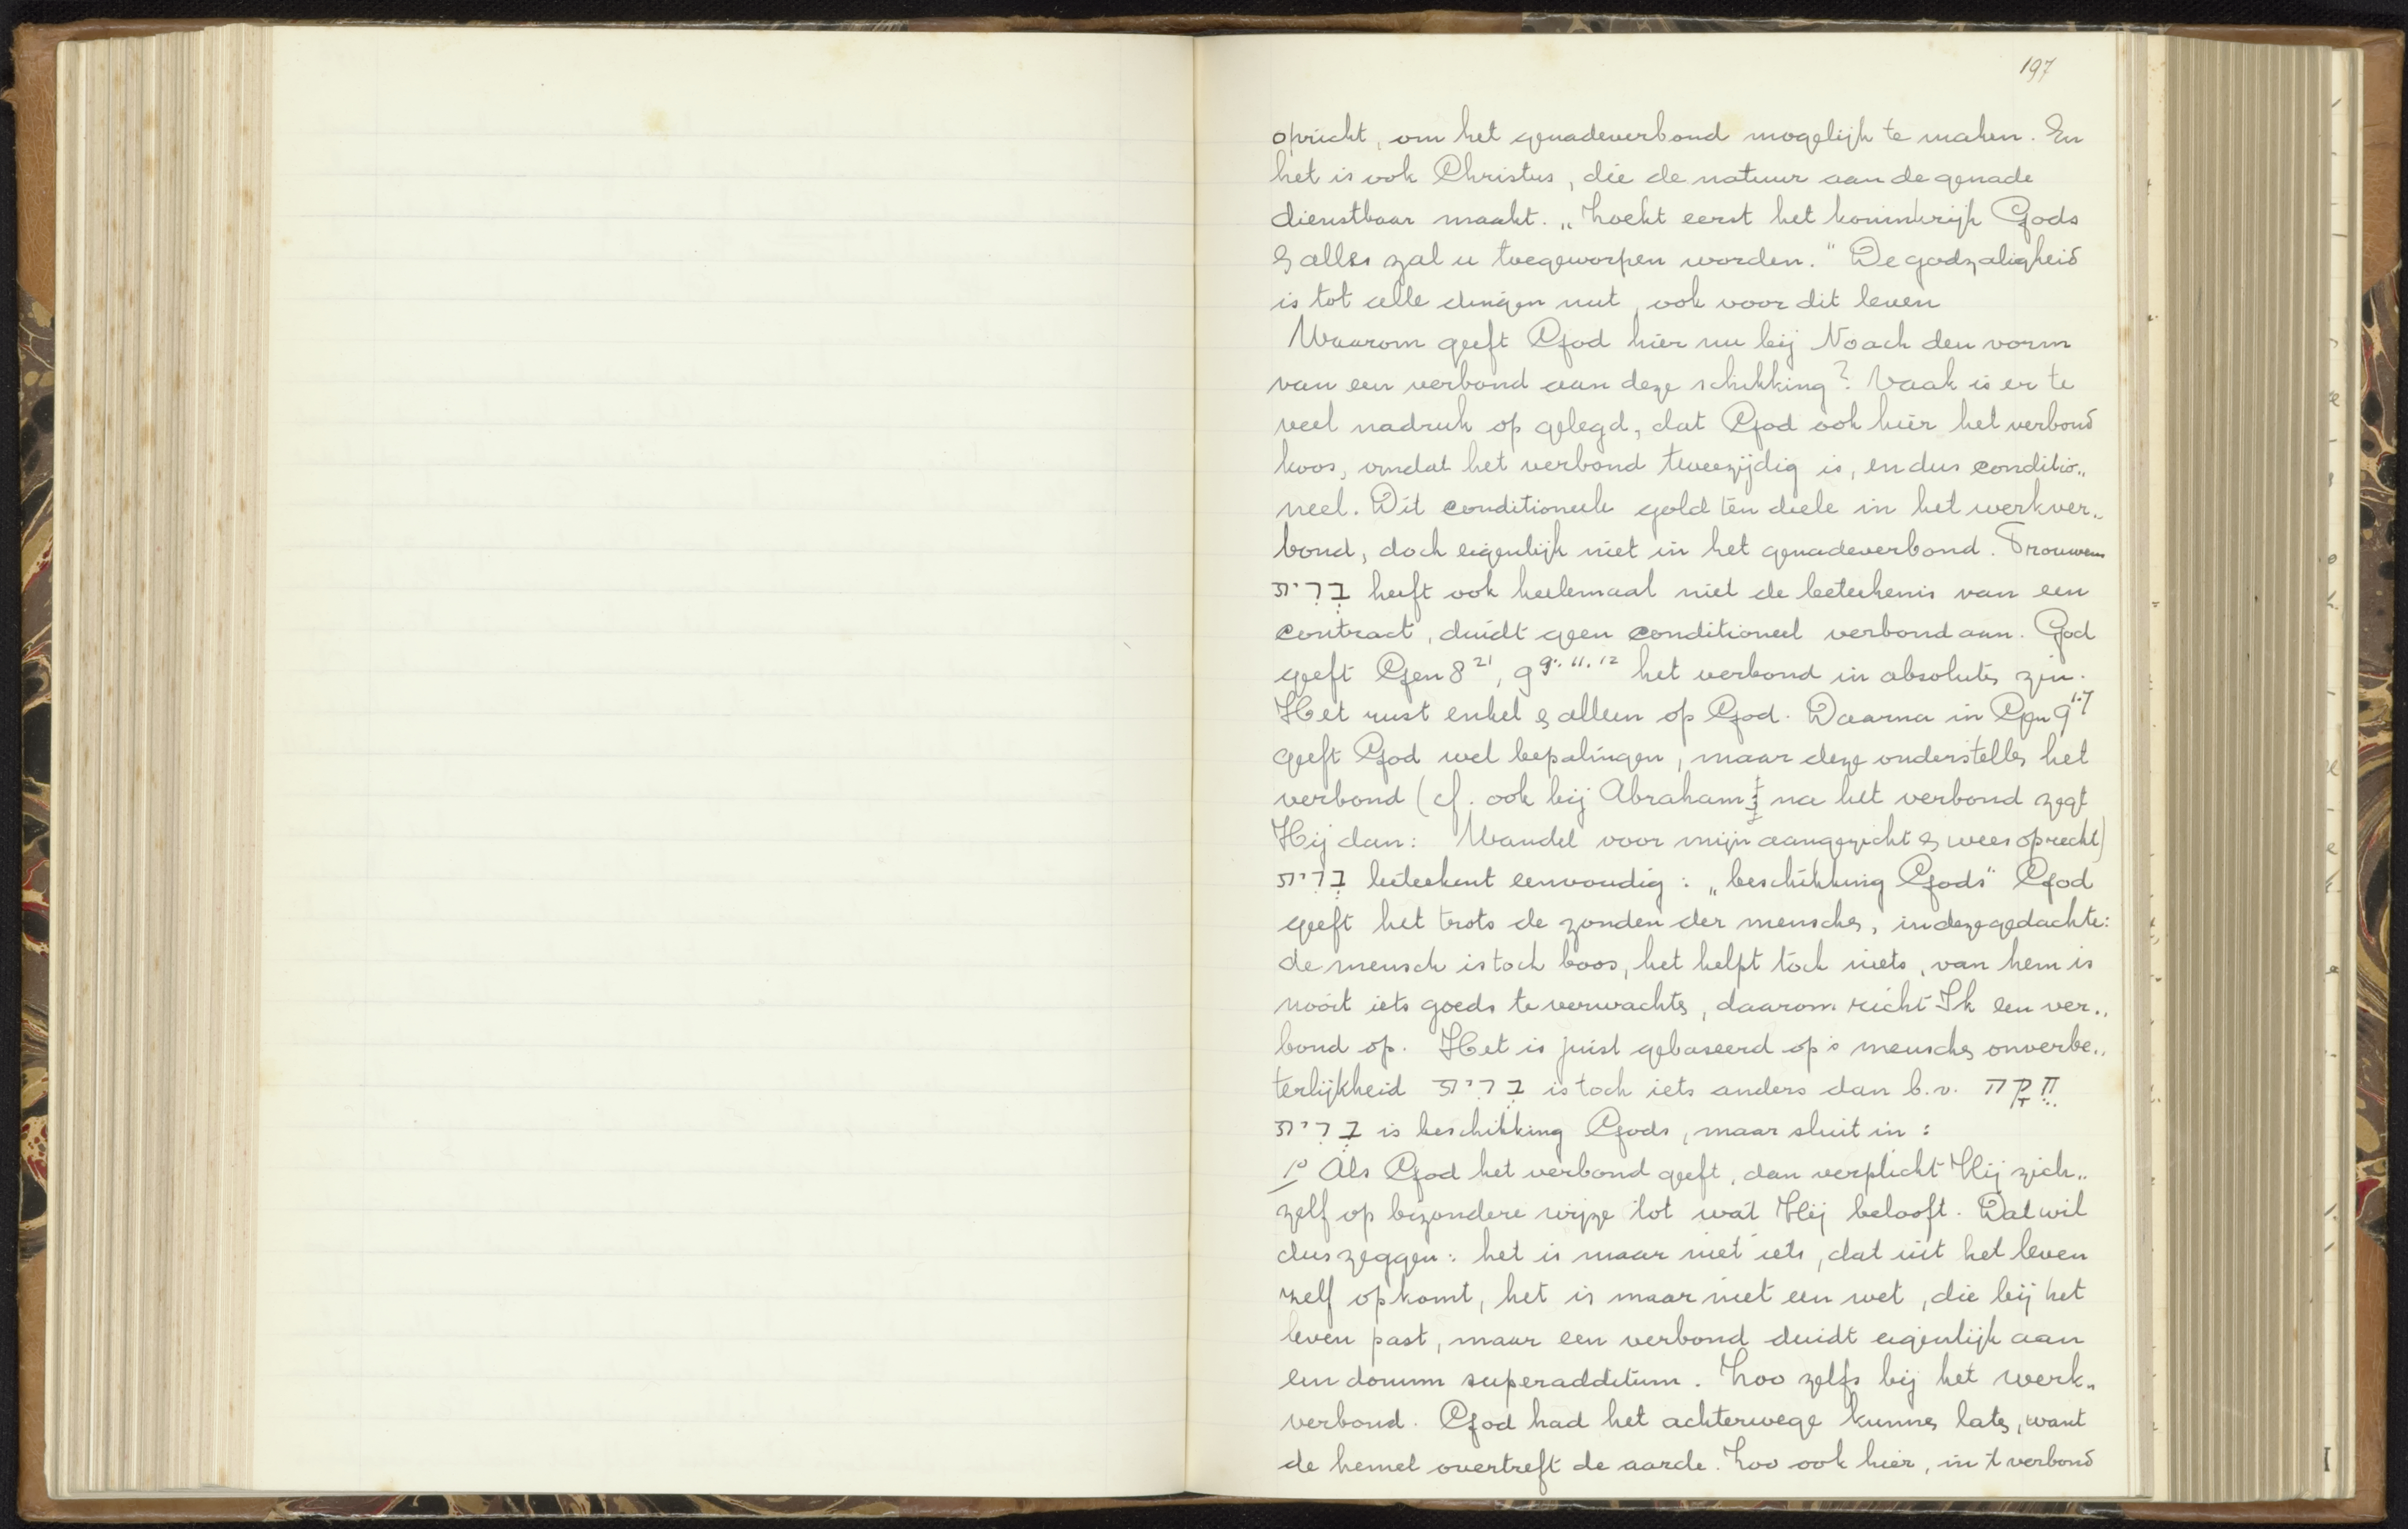 197
opricht, om het genadeverbond mogelijk te maken. En
het is ook Christus, die de natuur aan de genade
dienstbaar maakt. „Zoekt eerst het koninkrijk Gods
& alles zal u toegeworpen worden." De godzaligheid
is tot alle dingen nut, ook voor dit leven
Waarom geeft God hier nu bij Noach den vorm
van een verbond aan deze schikking? Vaak is er te
veel nadruk op gelegd, dat God ook hier het verbond
koos, omdat het verbond tweezijdig is, en dus conditio„
neel. Dit conditioneele gold ten deele in het werkver„
bond, doch eigenlijk niet in het genadeverbond. Trouwens
בְּרִית heeft ook heelemaal niet de beteekenis van een
contract, duidt geen conditioneel verbond aan. God
geeft Gen 8 21, 9 9. 11. 12 het verbond in absoluten zin.
Het rust enkel & alleen op God. Daarna in Gen 9 1-7
geeft God wel bepalingen, maar deze onderstellen het
verbond (cf. ook bij Abraham; na het verbond zegt
Hij dan: Wandel voor mijn aangezicht & wees oprecht)
בְּרִית beteekent eenvoudig: „beschikking Gods" God
geeft het trots de zonden der menschen, in deze gedachte:
de mensch is toch boos, het helpt toch niets, van hem is
nooit iets goeds te verwachten, daarom richt Ik een ver„
bond op. Het is juist gebaseerd op 's menschen onverbe„
terlijkheid בְּרִית is toch iets anders dan b.v. חֻקָּה
בְּרִית is beschikking Gods, maar sluit in:
1o Als God het verbond geeft, dan verplicht Hij zich„
zelf op bizondere wijze tot wat Hij belooft. Dat wil
dus zeggen: het is maar niet iets, dat uit het leven
zelf opkomt, het is maar niet een wet, die bij het
leven past, maar een verbond duidt eigenlijk aan
een donum superadditum. Zoo zelfs bij het werk„
verbond. God had het achterwege kunnen laten, want
de hemel overtreft de aarde. Zoo ook hier, in 't verbond